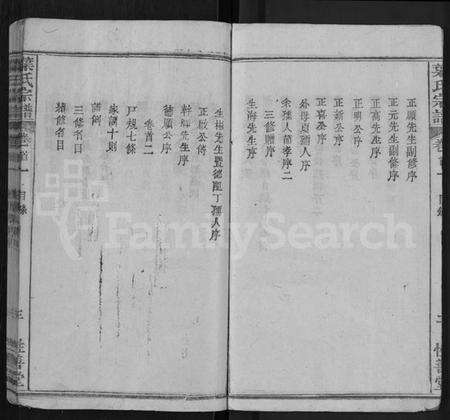 葉氏宗譜
卷首一
目錄
正顯先生副修序
正元先生副修序
正高先生序
正明公序
正新公序
正喜公序
外母貞孺人序
余孺人節孝序二
三修贈序
生海先生序
生梅先生暨德配丁孺人序
正殷公傳
幹卿先生序
德順公序
卷首二
尸規七條
家訓十則
譜例
三修名目
捐修名目
葉氏宗譜
卷首一
目錄
三
性善堂
性善堂
FamilySearch